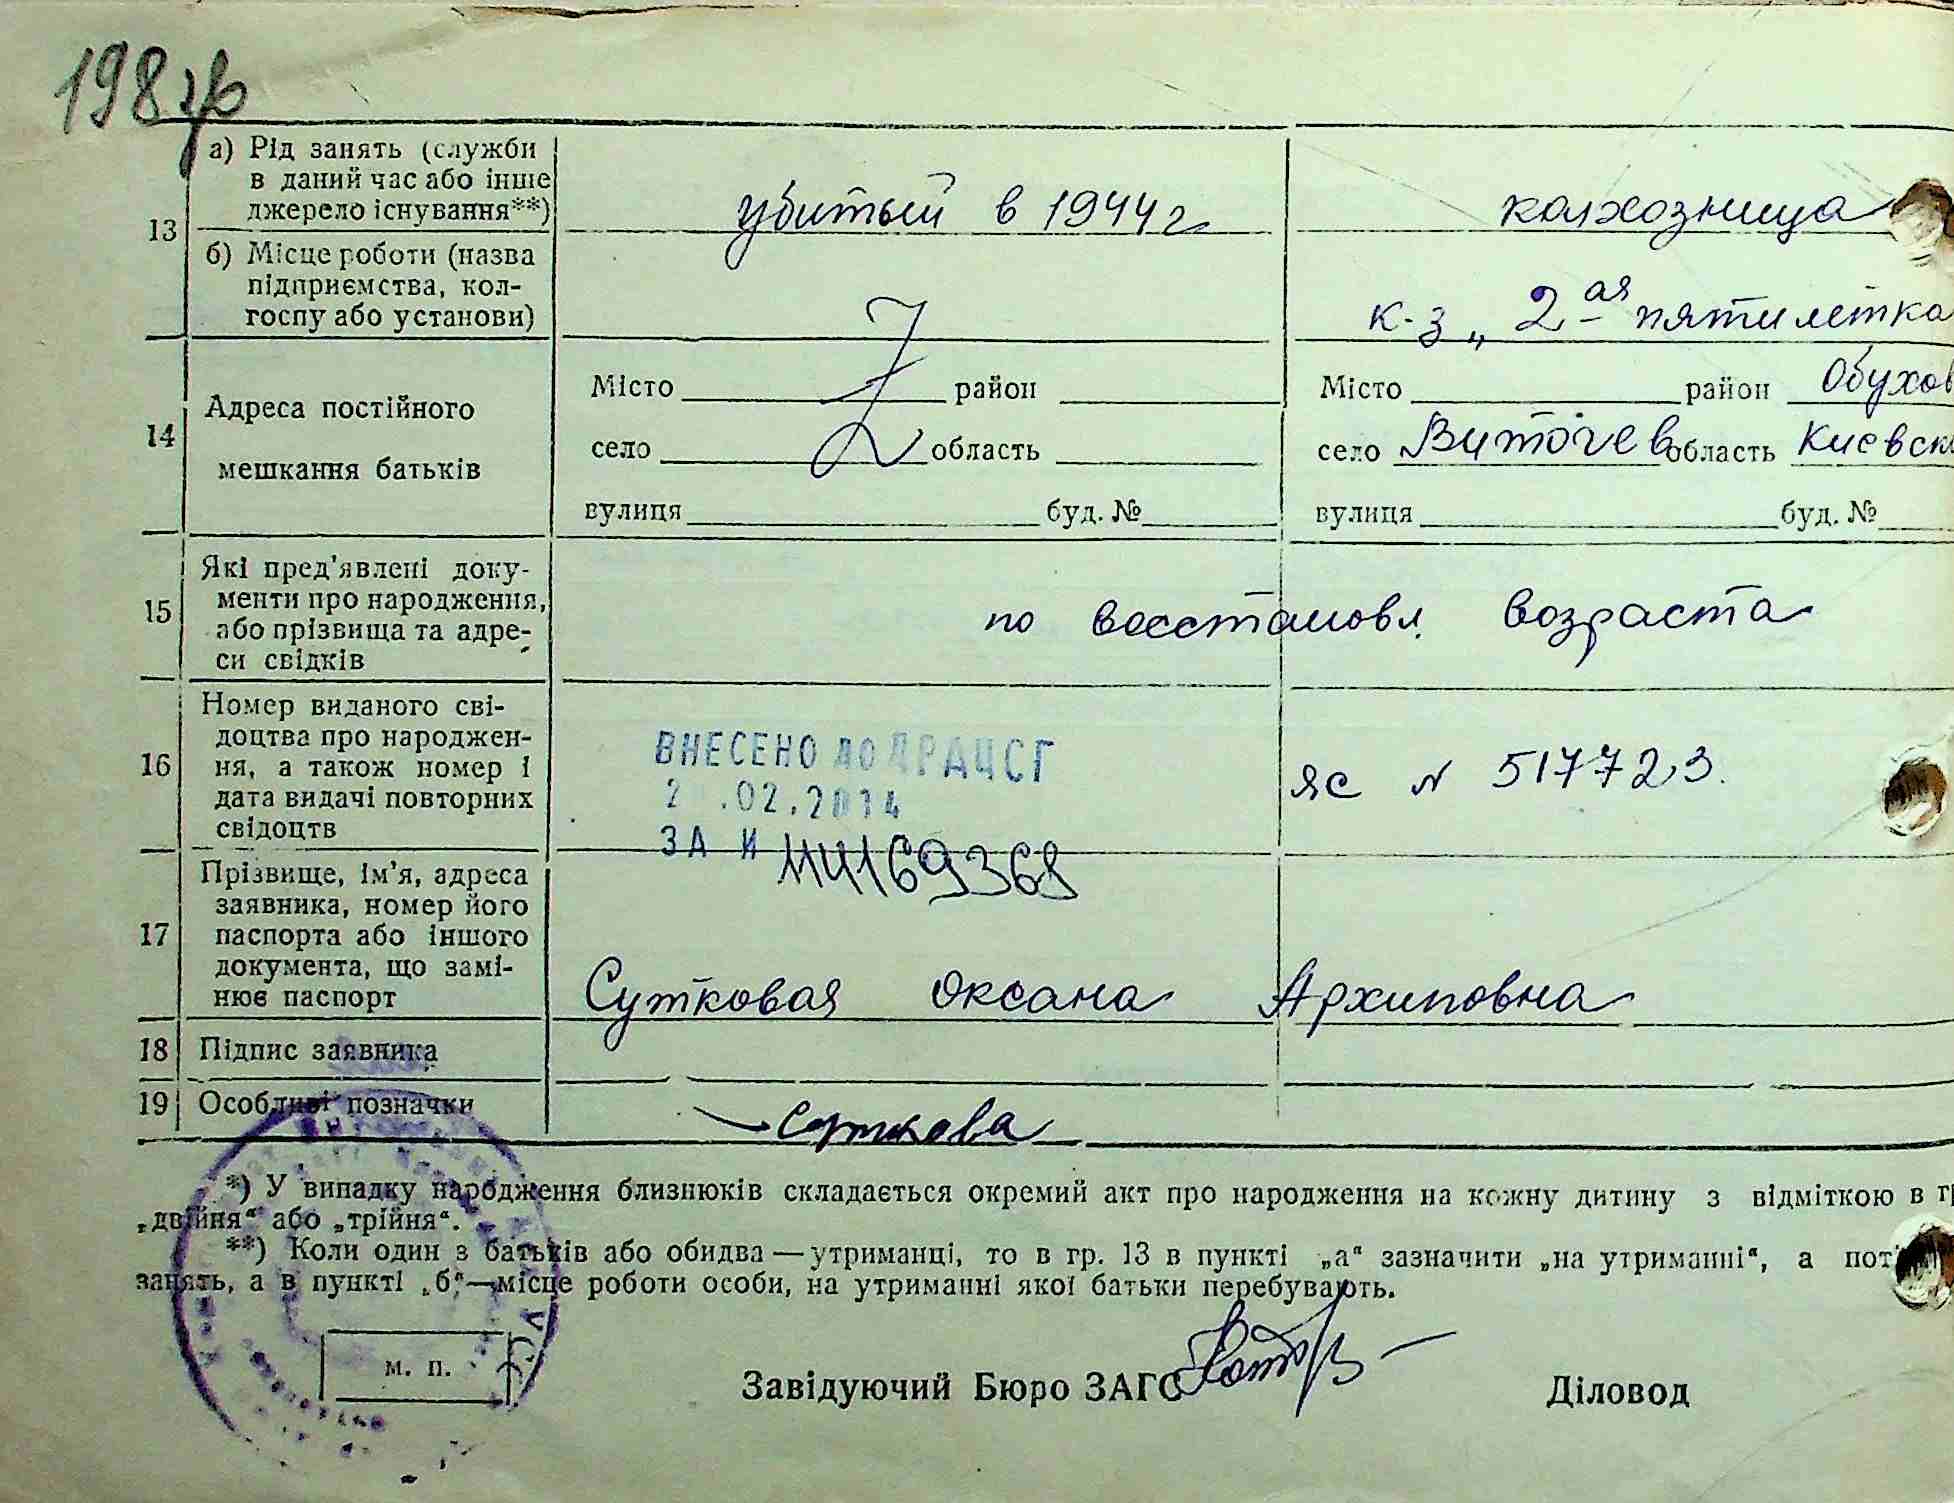 198
13 а) Рід занять (служби
в даний час або інше
джерело існування**)
убитый в 1944 г
колхозница
б) Місце роботи (назва
підприємства, кол-
госпу або установи)
к-з „2-ая пятилетка
14 Адреса постійного
мешкання батьків
Місто район
село область
вулиця буд. №
Місто район Обухов
село Витачев область Киевск
вулиця буд. №
15 Які пред’явлені доку-
менти про народження,
або прізвища та адре-
си свідків
по восстановл. возраста
16 Номер виданого сві-
доцтва про народжен-
ня, а також номер і
дата видачі повторних
свідоцтв
ВНЕСЕНО ДО ДРАЦСГ
2 .02.2014
ЗА И 114169368
ЯС № 517723.
17 Прізвище, ім’я, адреса
заявника, номер його
паспорта або іншого
документа, що замі-
нює паспорт
Сутковая Оксана Архиповна
18 Підпис заявника
19 Особливі позначки
Суткова
*) У випадку народження близнюків складається окремий акт про народження на кожну дитину з відміткою в гр
„двійня“ або „трійня“.
**) Коли один з батьків або обидва — утриманці, то в гр. 13 в пункті „а“ зазначити „на утриманні“, а пот
занять, а в пункті „б“—місце роботи особи, на утриманні якої батьки перебувають.
м. п.
Завідуючий Бюро ЗАГС
Діловод